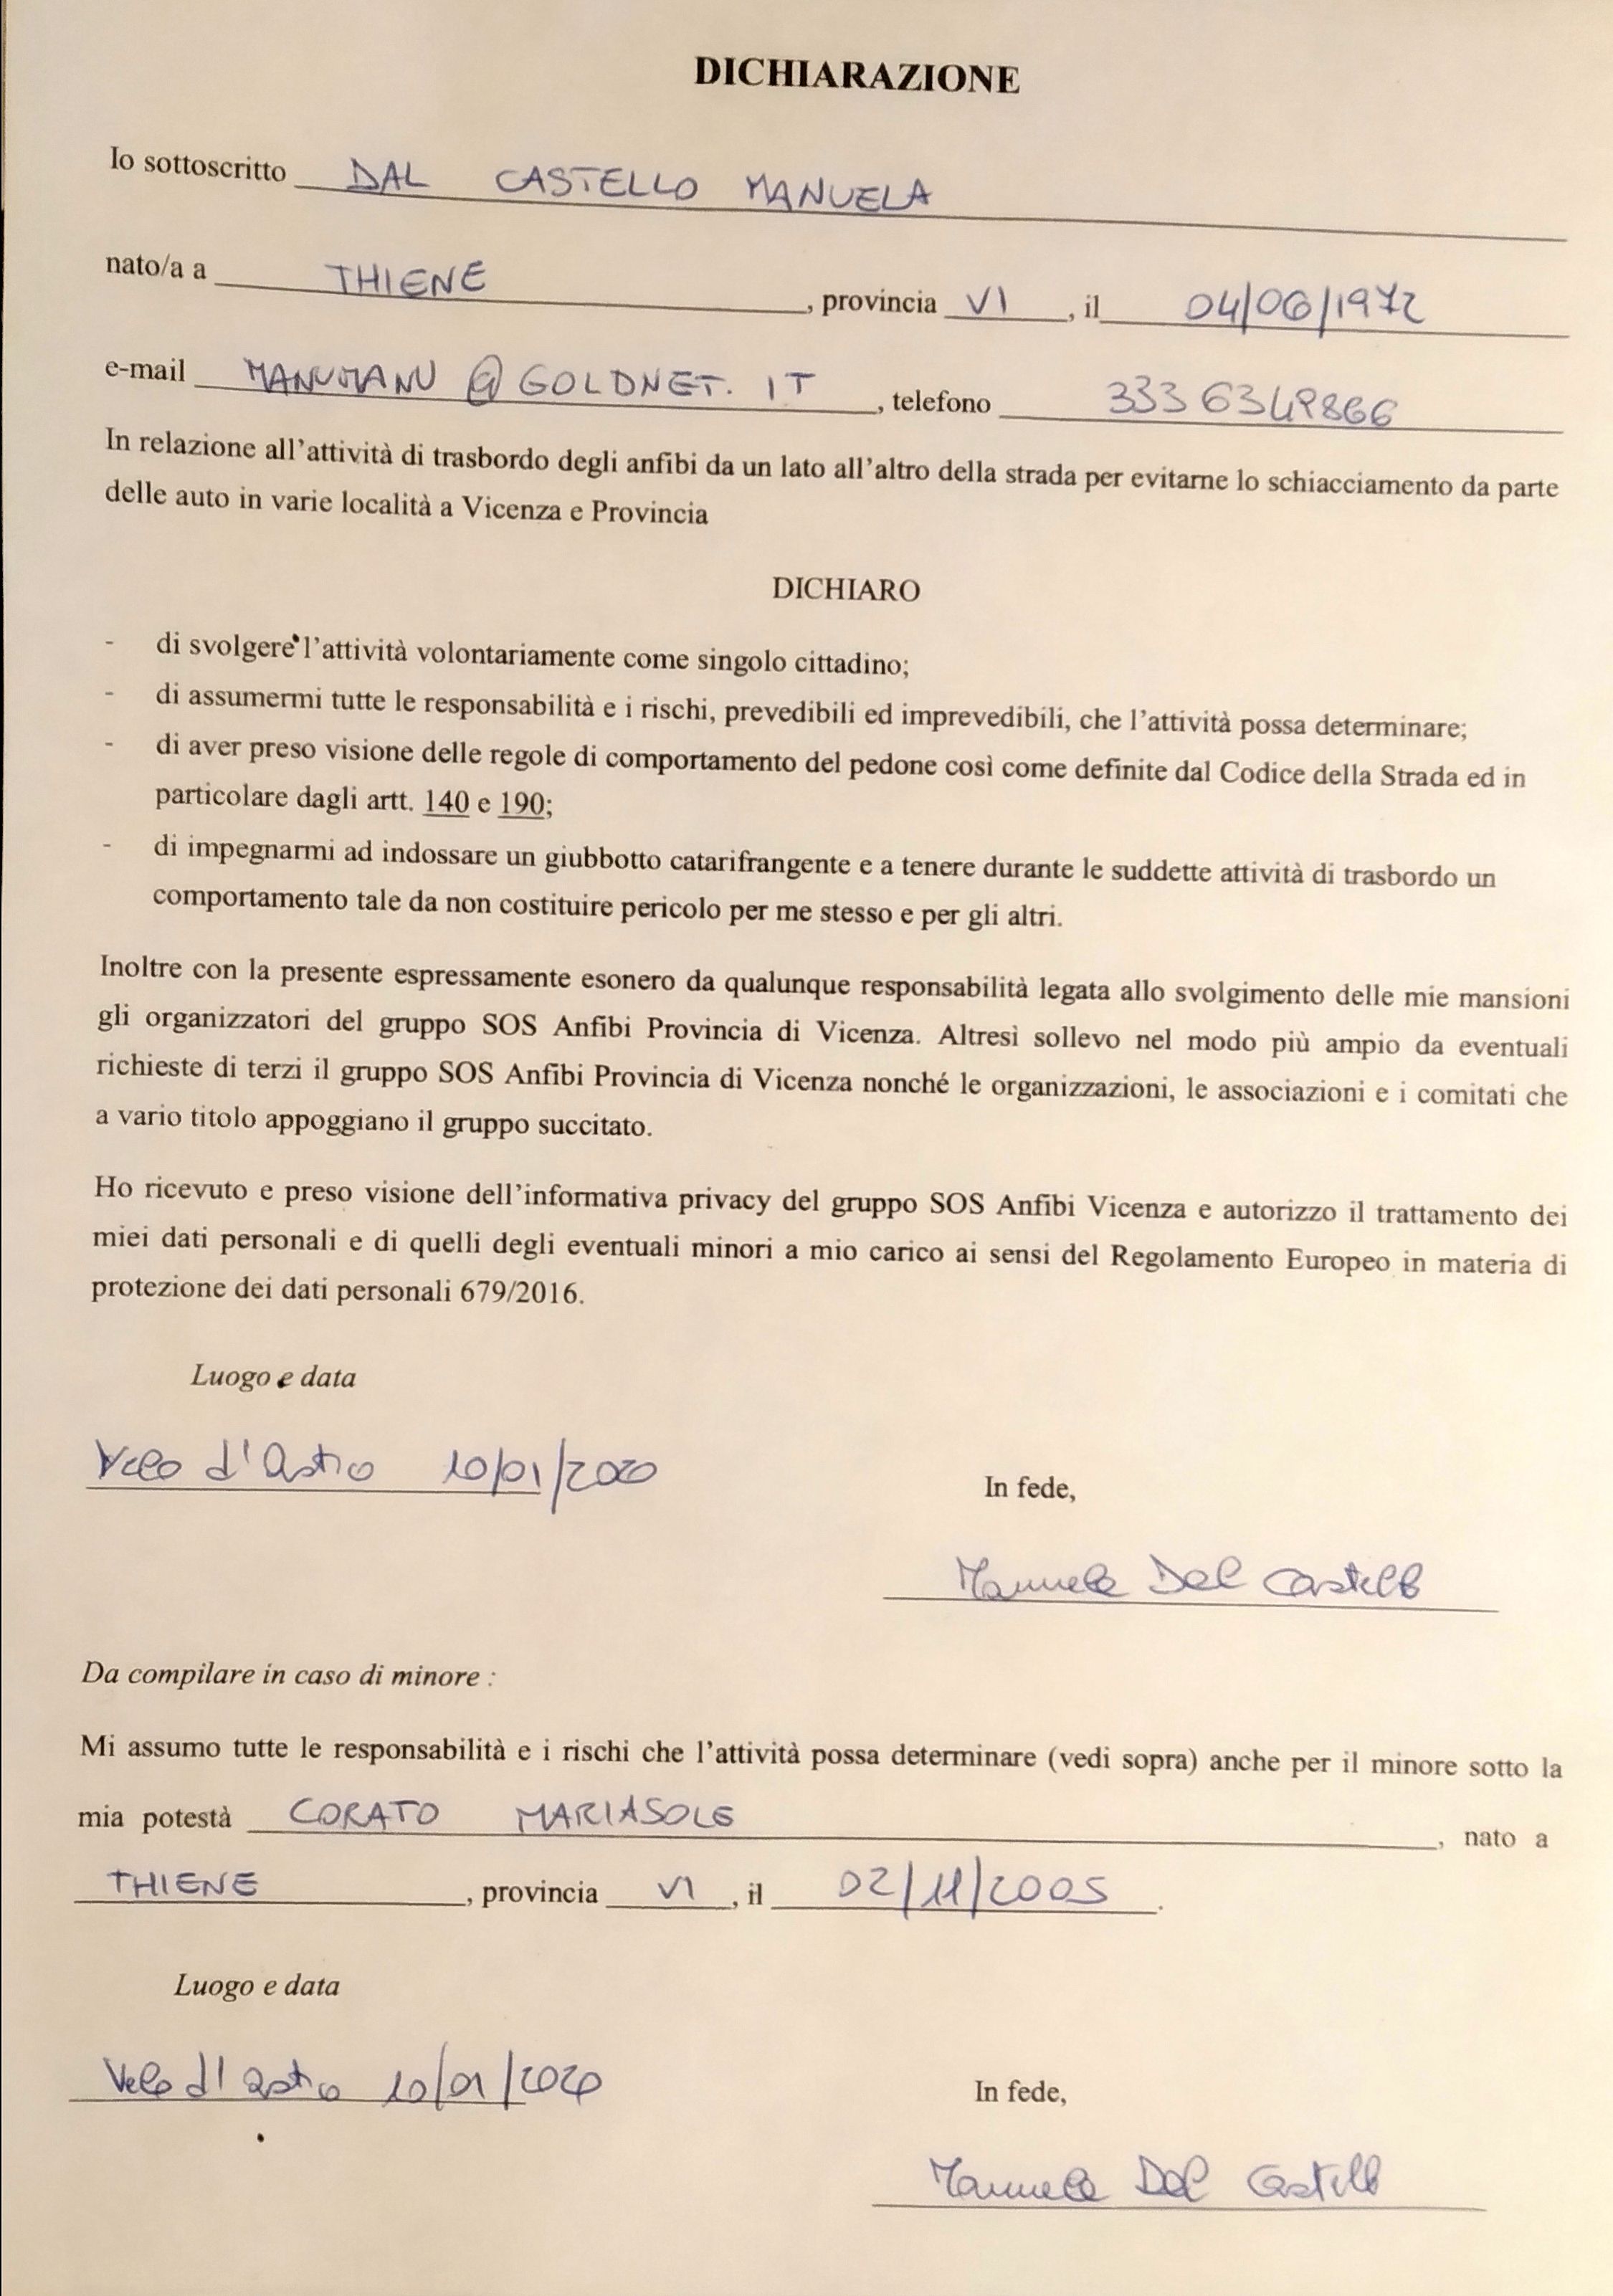 DICHIARAZIONE
Io sottoscritto DAL CASTELLO MANUELA
nato/a a THIENE, provincia VI, il 04/06/1972
e-mail MANUMANU@GOLDNET.IT, telefono 3336349866
In relazione all'attività di trasbordo degli anfibi da un lato all'altro della strada per evitarne lo schiacciamento da parte
delle auto in varie località a Vicenza e Provincia
DICHIARO
- di svolgere l'attività volontariamente come singolo cittadino;
- di assumermi tutte le responsabilità e i rischi, prevedibili ed imprevedibili, che l'attività possa determinare;
- di aver preso visione delle regole di comportamento del pedone così come definite dal Codice della Strada ed in
particolare dagli artt. 140 e 190;
- di impegnarmi ad indossare un giubbotto catarifrangente e a tenere durante le suddette attività di trasbordo un
comportamento tale da non costituire pericolo per me stesso e per gli altri.
Inoltre con la presente espressamente esonero da qualunque responsabilità legata allo svolgimento delle mie mansioni
gli organizzatori del gruppo SOS Anfibi Provincia di Vicenza. Altresì sollevo nel modo più ampio da eventuali
richieste di terzi il gruppo SOS Anfibi Provincia di Vicenza nonché le organizzazioni, le associazioni e i comitati che
a vario titolo appoggiano il gruppo succitato.
Ho ricevuto e preso visione dell'informativa privacy del gruppo SOS Anfibi Vicenza e autorizzo il trattamento dei
miei dati personali e di quelli degli eventuali minori a mio carico ai sensi del Regolamento Europeo in materia di
protezione dei dati personali 679/2016.
Luogo e data
Velo d'Astico 10/01/2020
In fede,
Manuela Dal Castello
Da compilare in caso di minore :
Mi assumo tutte le responsabilità e i rischi che l'attività possa determinare (vedi sopra) anche per il minore sotto la
mia potestà CORATO MARIASOLE, nato a
THIENE, provincia VI, il 02/11/2005.
Luogo e data
Velo d'Astico 10/01/2020
In fede,
Manuela Dal Castello